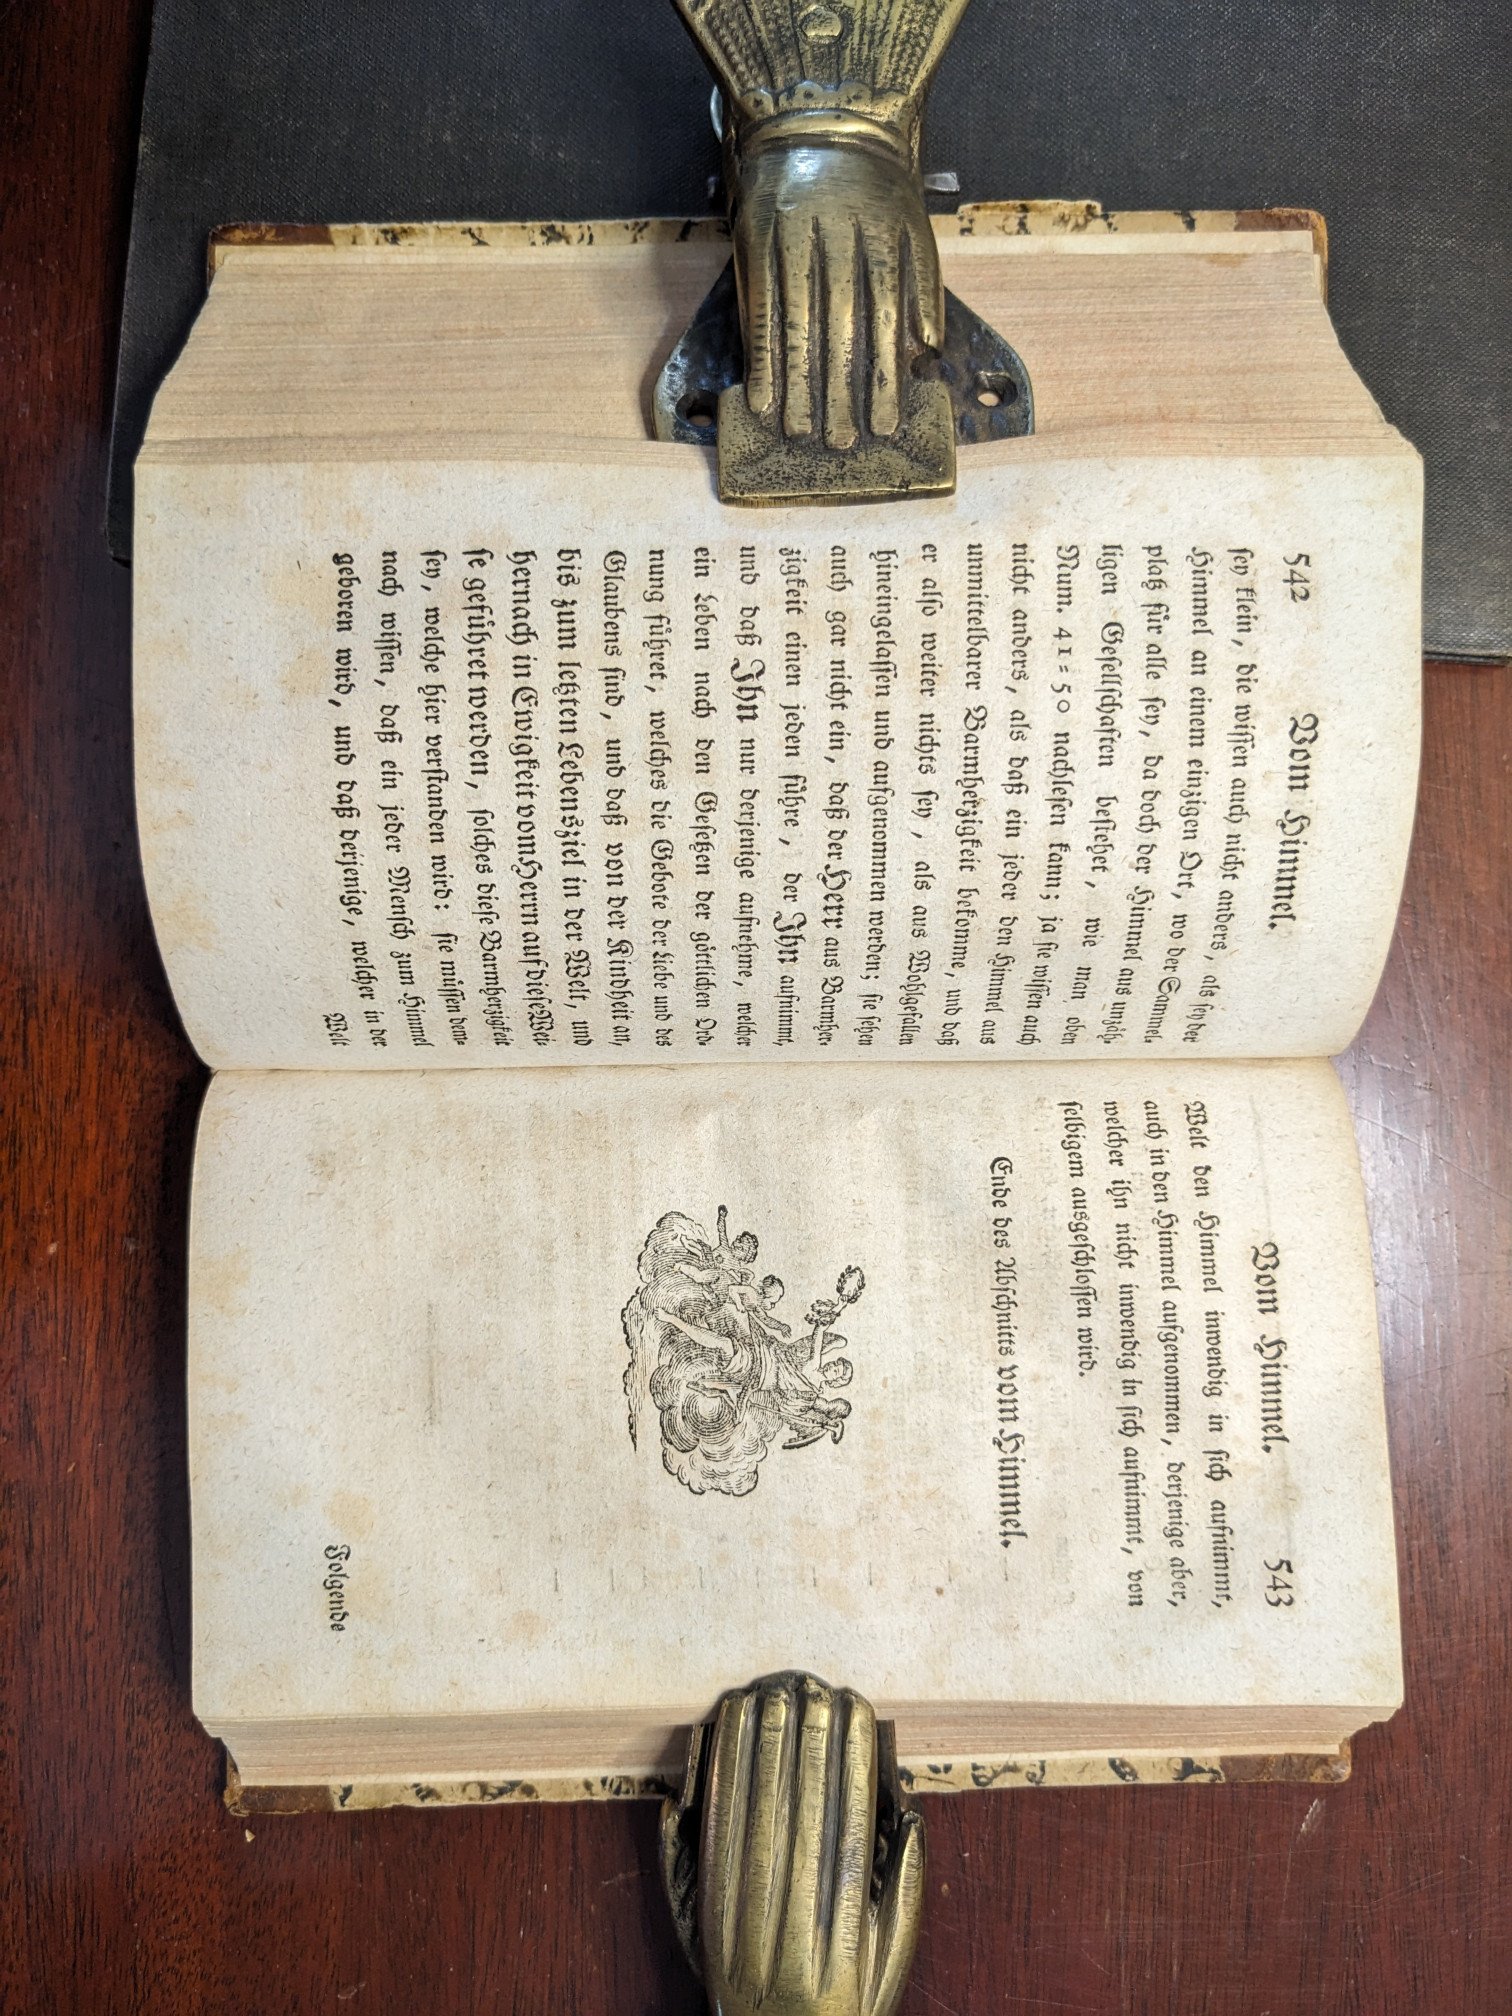 542 Vom Himmel.
sey klein, die wissen auch nicht anders, als sey der
Himmel an einem einzigen Ort, wo der Sammel-
plaß für alle sey, da doch der Himmel aus unzäh-
ligen Gesellschaften bestehet, wie man oben
Num. 41=50 nachlesen kann; ja sie wissen auch
nicht anders, als daß ein jeder den Himmel aus
unmittelbarer Barmherzigkeit bekomme, und daß
er also weiter nichts sey, als aus Wohlgefallen
hineingelassen und aufgenommen werden; sie sehen
auch gar nicht ein, daß der Herr aus Barmher-
zigkeit einen jeden führe, der Ihn aufnimmt,
und daß Ihn nur derjenige aufnehme, welcher
ein Leben nach den Gesetzen der göttlichen Ord-
nung führet, welches die Gebote der Liebe und des
Glaubens sind, und daß von der Kindheit an,
bis zum letzten Lebensziel in der Welt, und
hernach in Ewigkeit vom Herrn auf diese Wei-
se geführet werden, solches diese Barmherzigkeit
sey, welche hier verstanden wird: sie müssen dem-
nach wissen, daß ein jeder Mensch zum Himmel
geboren wird, und daß derjenige, welcher in der
Welt
Vom Himmel. 543
Welt den Himmel inwendig in sich aufnimmt,
auch in den Himmel aufgenommen, derjenige aber,
welcher ihn nicht inwendig in sich aufnimmt, von
selbigem ausgeschlossen wird.
Ende des Abschnitts vom Himmel.
Folgende